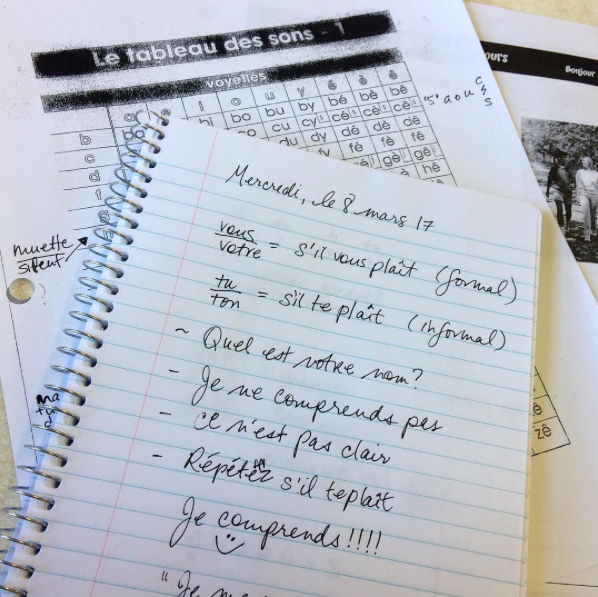 Le tableau des sons - 1
voyelles
i o u y é è ê
bo bu by bé bè bê
b cu cy cé cè cê "s" a o u
c du dy dé dè dê
d fé fè fê
gé gè gê
hê
ours
Bonjour
muette
silent
zê
Mercredi, le 8 mars 17
vous
votre = s'il vous plaît (formal)
tu
ton = s'il te plaît (informal)
~ Quel est votre nom?
- Je ne comprends pas
- ce n'est pas clair
- Répétez s'il te plaît
Je comprends!!!!
"Je